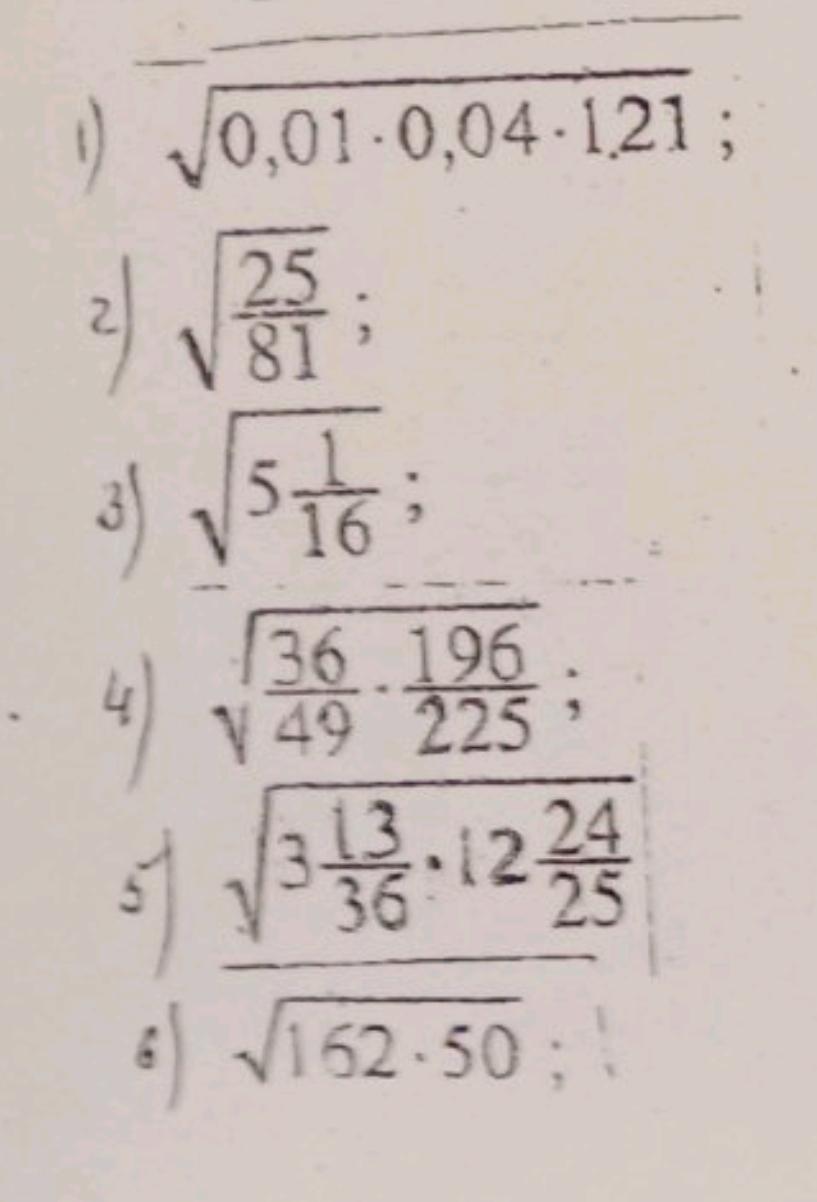 1) √(0,01·0,04·1,21) ;
2) √(25/81) ;
3) √(5 1/16) ;
4) √(36/49 · 196/225) ;
5) √(3 13/36 · 12 24/25)
6) √(162·50) ;